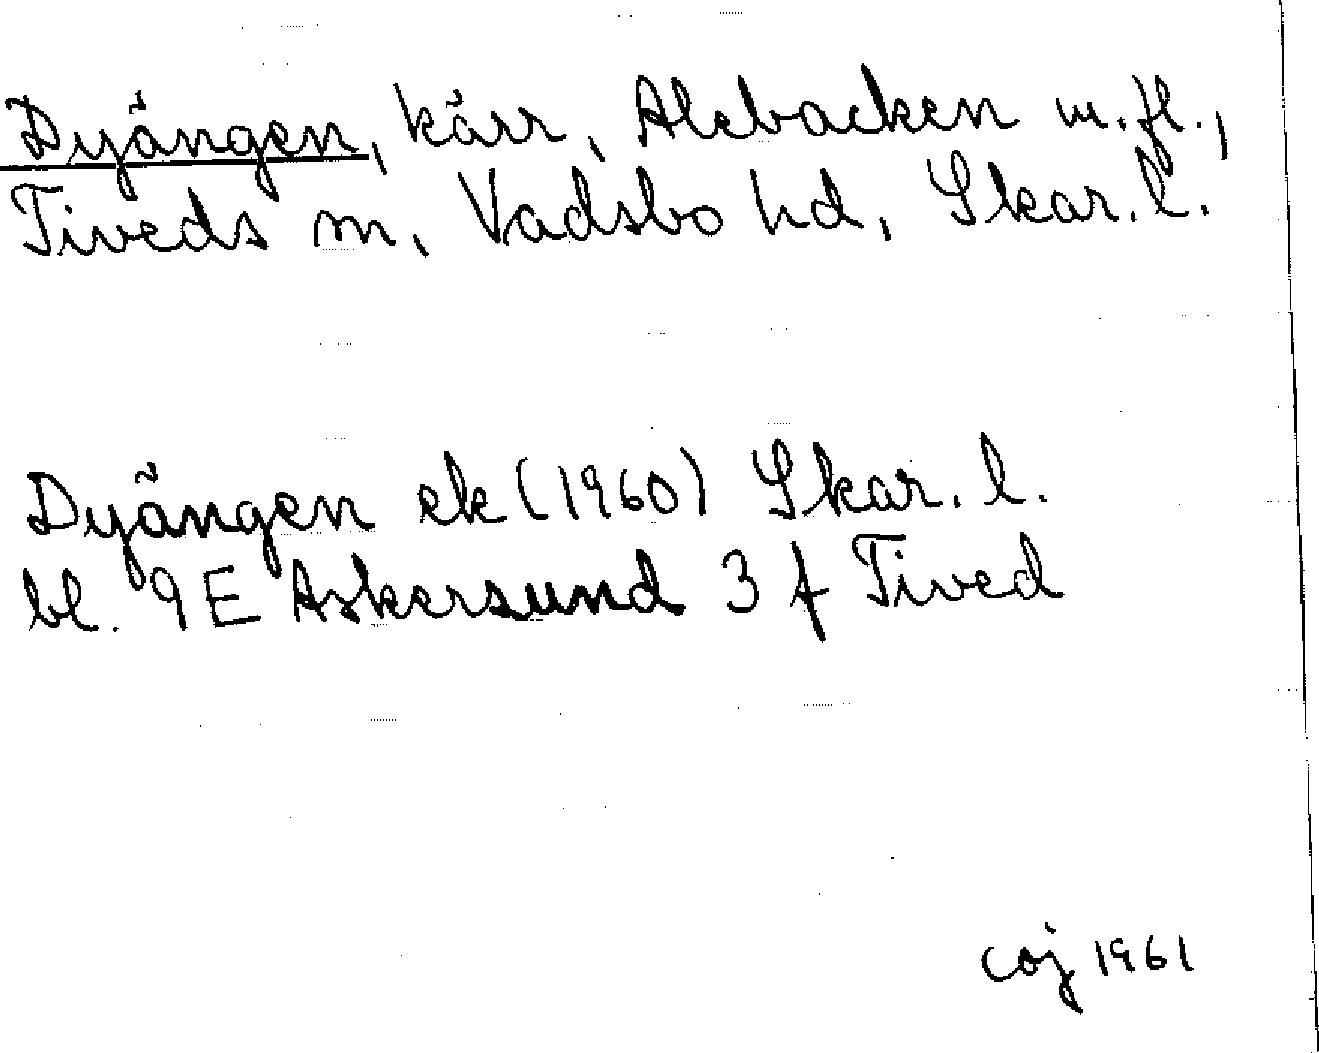 Dyängen, kärr, Alebacken m.fl.,
Tiveds sn, Vadsbo hd, Skar. l.
Dyängen ek (1960) Skar. l.
bl. 9E Askersund 3 f Tived
coj 1961